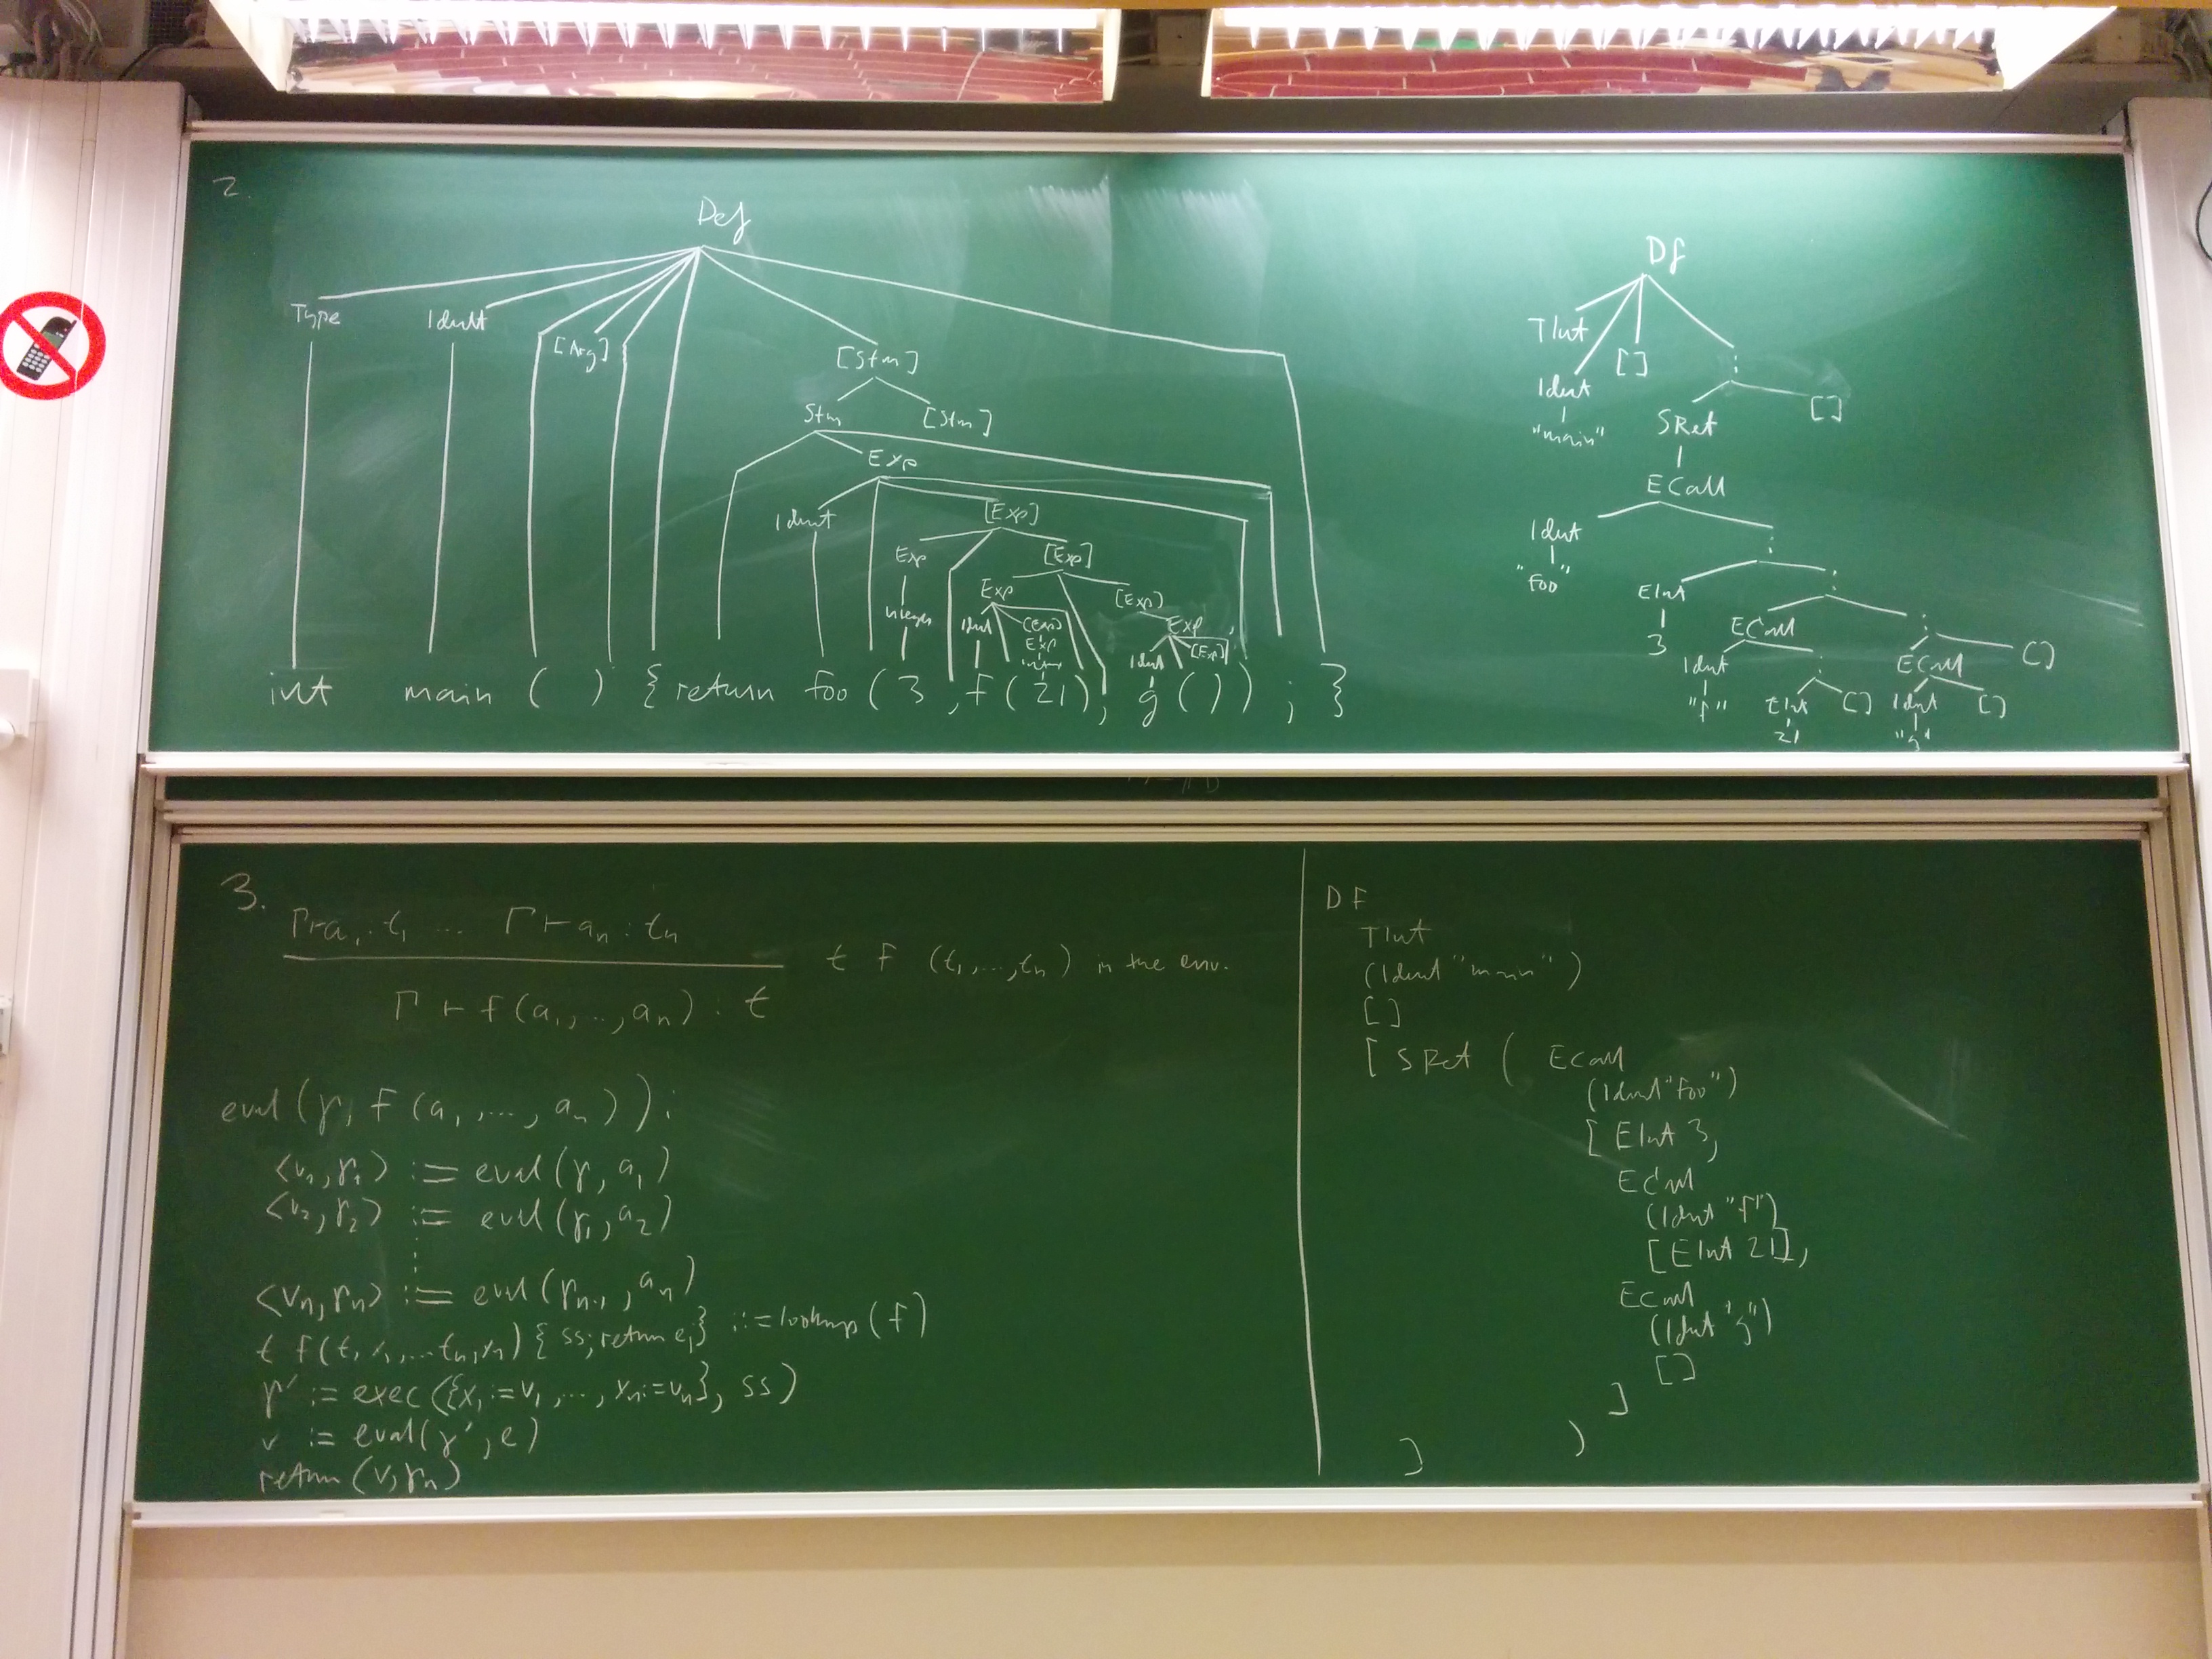 2.
Def
Type Ident [Arg] [Stm]
Stm [Stm]
Exp
Ident [Exp]
Exp [Exp]
Integer Exp [Exp]
Ident [Exp] Exp
Exp Ident [Exp]
int main ( ) { return foo ( 3 , f ( 21 ) , g ( ) ) ; }
Df
TInt [] :
Ident SRet []
"main"
ECall
Ident :
"foo" EInt :
3 ECall :
Ident : ECall []
"f" EInt [] Ident []
21 "g"
3.
Γ ⊢ a₁ : t₁ ... Γ ⊢ aₙ : tₙ
t f (t₁,...,tₙ) in the env.
Γ ⊢ f(a₁,...,aₙ) : t
eval(γ, f(a₁,...,aₙ)):
<v₁,γ₁> := eval(γ,a₁)
<v₂,γ₂> := eval(γ₁,a₂)
⋮
<vₙ,γₙ> := eval(γₙ₋₁,aₙ)
t f(t₁ x₁,...tₙ,xₙ) { ss; return e;} ::= lookup(f)
γ' := exec({x₁:=v₁,..., xₙ:=vₙ}, ss)
v := eval(γ',e)
return (v,γₙ)
DF
TInt
(Ident "main")
[]
[ SRet ( ECall
(Ident "foo")
[ EInt 3,
ECall
(Ident "f")
[EInt 21],
ECall
(Ident "g")
[]
]
)
]